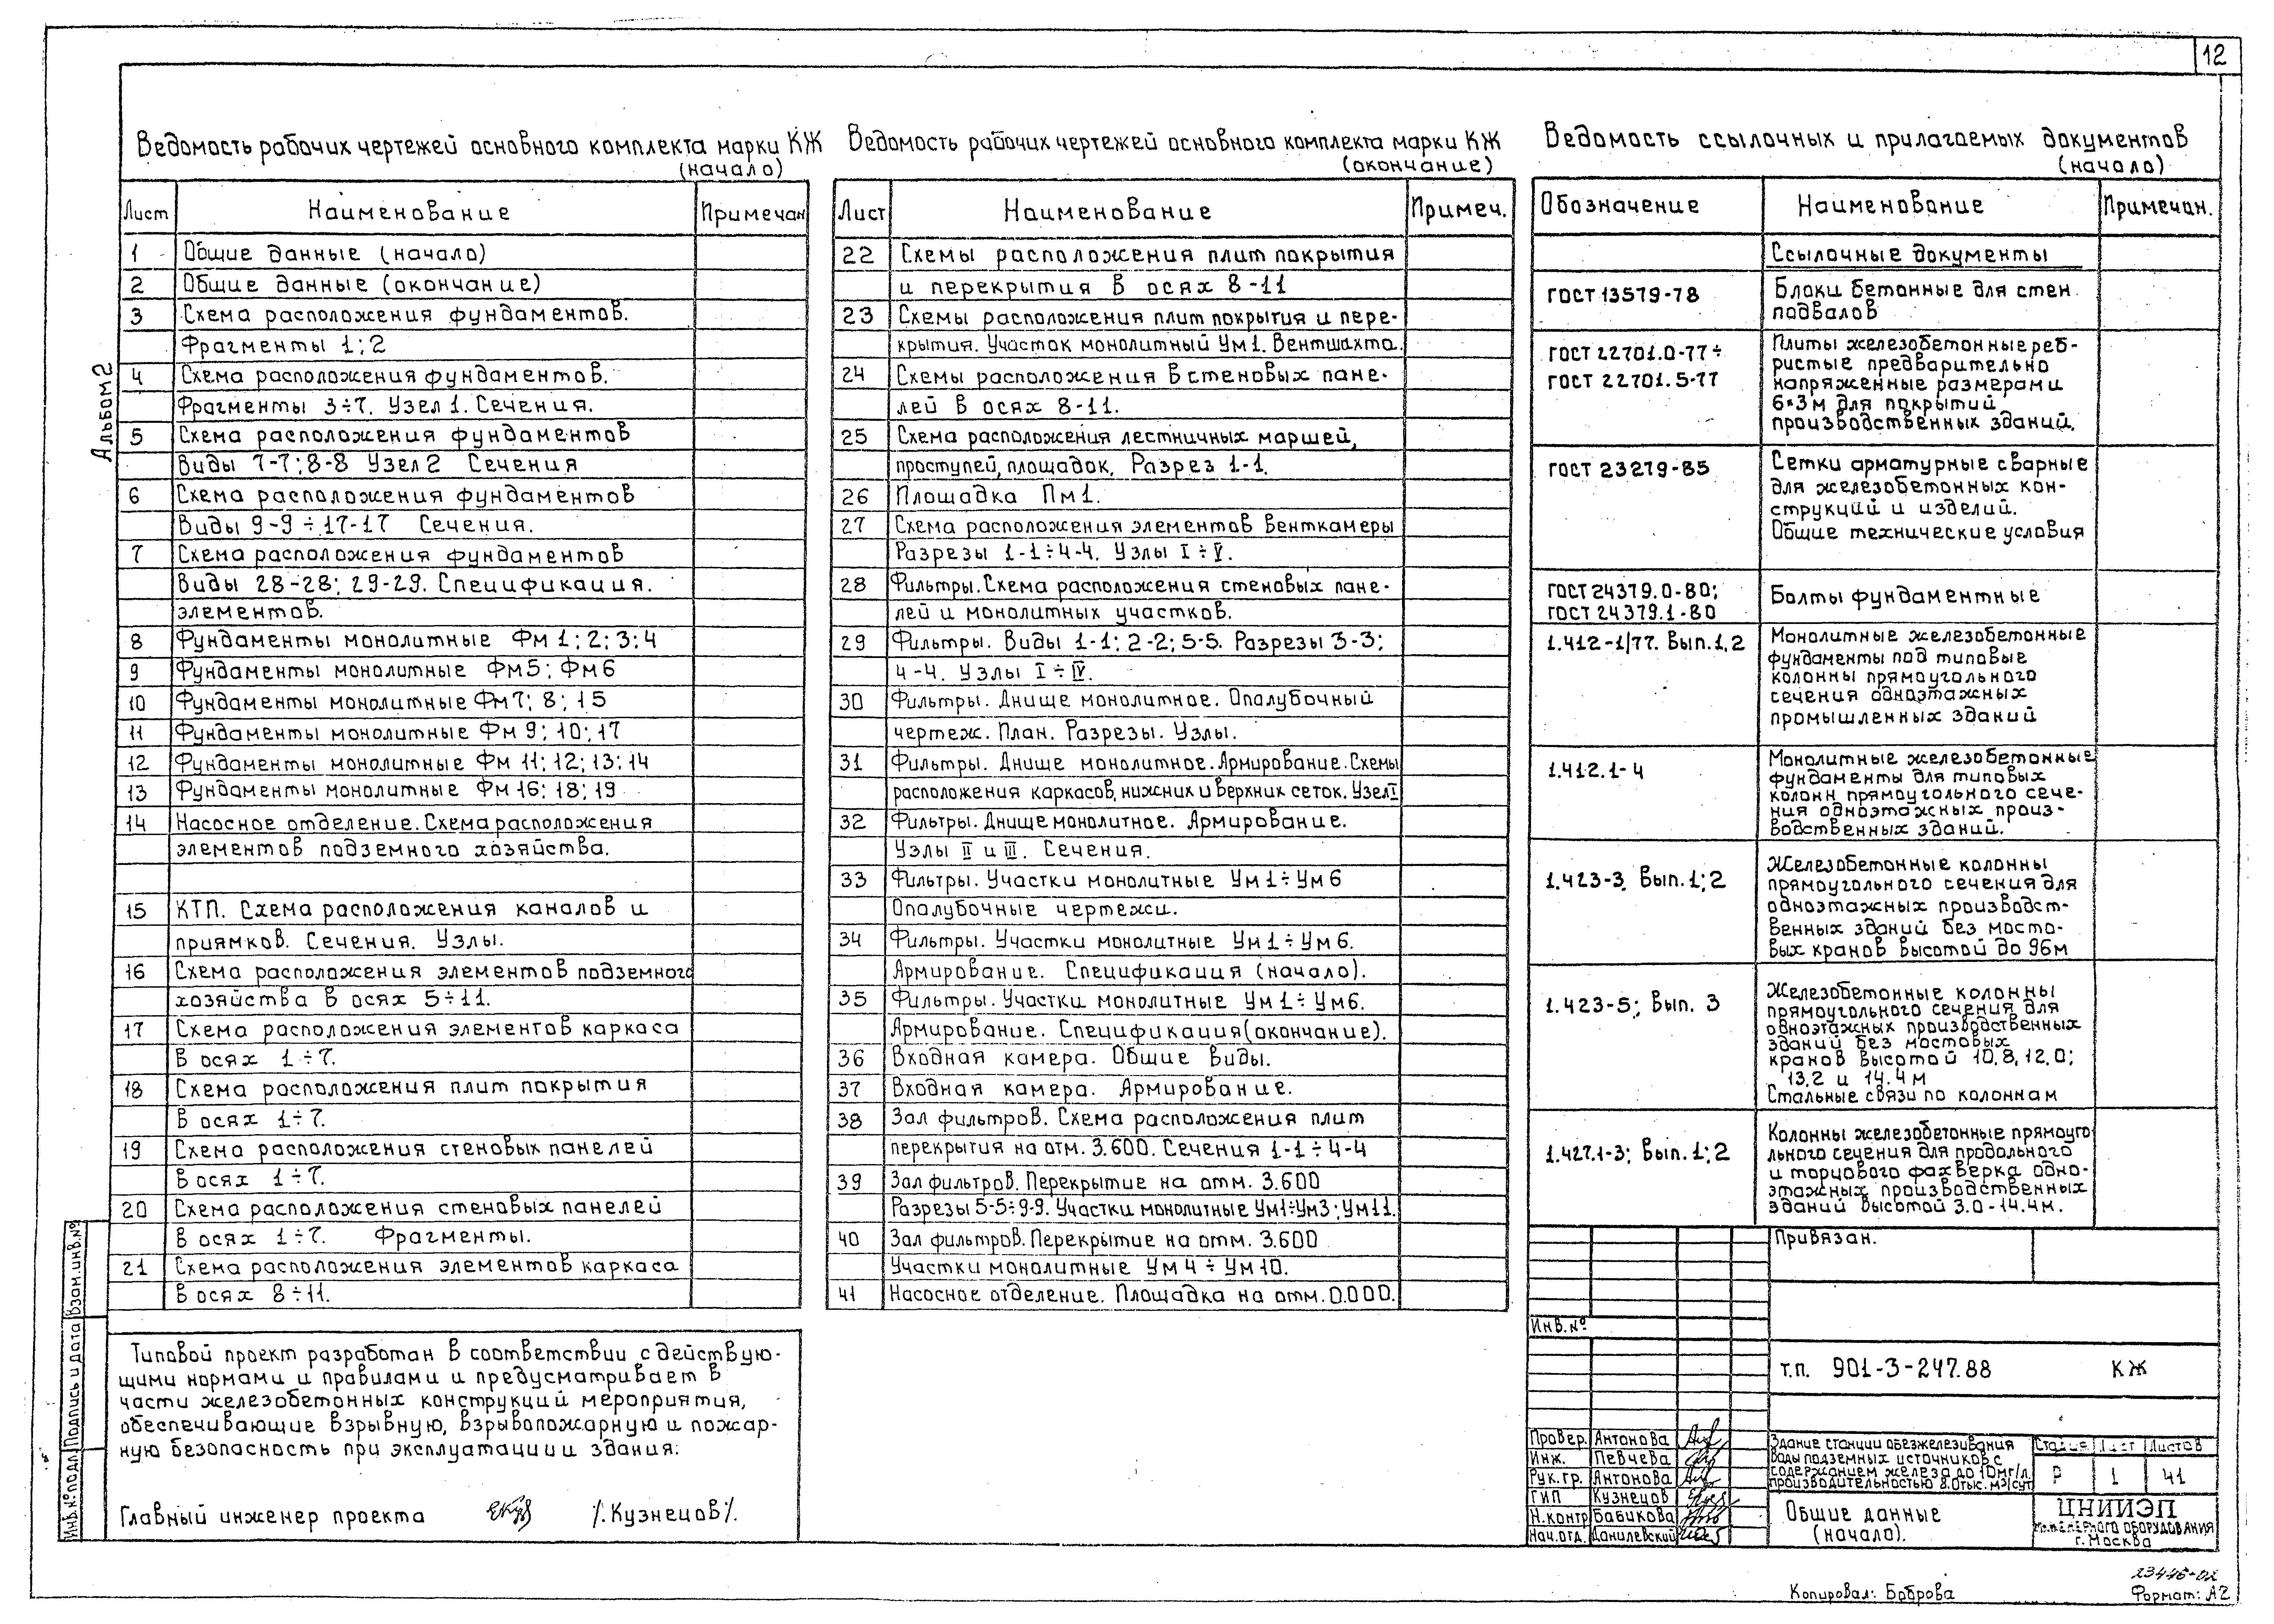 12
Альбом 2
Ведомость рабочих чертежей основного комплекта марки КЖ
(начало)
Лист Наименование Примечан
1 Общие данные (начало)
2 Общие данные (окончание)
3 Схема расположения фундаментов.
Фрагменты 1; 2
4 Схема расположения фундаментов.
Фрагменты 3÷7. Узел 1. Сечения.
5 Схема расположения фундаментов
Виды 7-7; 8-8 Узел 2 Сечения
6 Схема расположения фундаментов
Виды 9-9÷17-17 Сечения.
7 Схема расположения фундаментов
Виды 28-28; 29-29. Спецификация.
элементов.
8 Фундаменты монолитные Фм 1; 2; 3; 4
9 Фундаменты монолитные Фм5; Фм6
10 Фундаменты монолитные Фм7; 8; 15
11 Фундаменты монолитные Фм 9; 10; 17
12 Фундаменты монолитные Фм 11; 12; 13; 14
13 Фундаменты монолитные Фм 16; 18; 19
14 Насосное отделение. Схема расположения
элементов подземного хозяйства.
15 КТП. Схема расположения каналов и
приямков. Сечения. Узлы.
16 Схема расположения элементов подземного
хозяйства в осях 5÷11.
17 Схема расположения элементов каркаса
в осях 1÷7.
18 Схема расположения плит покрытия
в осях 1÷7.
19 Схема расположения стеновых панелей
в осях 1÷7.
20 Схема расположения стеновых панелей
в осях 1÷7. Фрагменты.
21 Схема расположения элементов каркаса
в осях 8÷11.
Типовой проект разработан в соответствии с действую-
щими нормами и правилами и предусматривает в
части железобетонных конструкций мероприятия,
обеспечивающие взрывную, взрывопожарную и пожар-
ную безопасность при эксплуатации здания.
Главный инженер проекта /.Кузнецов/.
Ведомость рабочих чертежей основного комплекта марки КЖ
(окончание)
Лист Наименование Примеч.
22 Схемы расположения плит покрытия
и перекрытия в осях 8-11
23 Схемы расположения плит покрытия и пере-
крытия. Участок монолитный Ум1. Вентшахта.
24 Схемы расположения встеновых пане-
лей в осях 8-11.
25 Схема расположения лестничных маршей,
проступей, площадок. Разрез 1-1.
26 Площадка Пм1.
27 Схема расположения элементов венткамеры
Разрезы 1-1÷4-4. Узлы I÷V.
28 Фильтры. Схема расположения стеновых пане-
лей и монолитных участков.
29 Фильтры. Виды 1-1; 2-2; 5-5. Разрезы 3-3;
4-4. Узлы I÷IV.
30 Фильтры. Днище монолитное. Опалубочный
чертеж. План. Разрезы. Узлы.
31 Фильтры. Днище монолитное. Армирование. Схемы
расположения каркасов, нижних и верхних сеток. Узел I
32 Фильтры. Днище монолитное. Армирование.
Узлы II и III. Сечения.
33 Фильтры. Участки монолитные Ум1÷Ум6
Опалубочные чертежи.
34 Фильтры. Участки монолитные Ум1÷Ум6.
Армирование. Спецификация (начало).
35 Фильтры. Участки монолитные Ум1÷Ум6.
Армирование. Спецификация (окончание).
36 Входная камера. Общие виды.
37 Входная камера. Армирование.
38 Зал фильтров. Схема расположения плит
перекрытия на отм. 3.600. Сечения 1-1÷4-4
39 Зал фильтров. Перекрытие на отм. 3.600
Разрезы 5-5÷9-9. Участки монолитные Ум1÷Ум3; Ум11.
40 Зал фильтров. Перекрытие на отм. 3.600
Участки монолитные Ум4÷Ум10.
41 Насосное отделение. Площадка на отм. 0.000.
Ведомость ссылочных и прилагаемых документов
(начало)
Обозначение Наименование Примечан.
Ссылочные документы
ГОСТ 13579-78 Блоки бетонные для стен
подвалов
ГОСТ 22701.0-77÷ Плиты железобетонные реб-
ГОСТ 22701.5-77 ристые предварительно
напряженные размерами
6×3м для покрытий
производственных зданий.
ГОСТ 23279-85 Сетки арматурные сварные
для железобетонных кон-
струкций и изделий.
Общие технические условия
ГОСТ 24379.0-80; Болты фундаментные
ГОСТ 24379.1-80
1.412-1/77. Вып. 1,2 Монолитные железобетонные
фундаменты под типовые
колонны прямоугольного
сечения одноэтажных
промышленных зданий
1.412.1-4 Монолитные железобетонные
фундаменты для типовых
колонн прямоугольного сече-
ния одноэтажных произ-
водственных зданий.
1.423-3. Вып. 1; 2 Железобетонные колонны
прямоугольного сечения для
одноэтажных производст-
венных зданий без мосто-
вых кранов высотой до 96м
1.423-5; Вып. 3 Железобетонные колонны
прямоугольного сечения для
одноэтажных производственных
зданий без мостовых
кранов высотой 10.8, 12.0;
13.2 и 14.4м
Стальные связи по колоннам
1.427.1-3; Вып. 1; 2 Колонны железобетонные прямоуго
льного сечения для продольного
и торцового фахверка одно-
этажных производственных
зданий высотой 3.0-14.4м.
Привязан.
Инв. №
т.п. 901-3-247.88 КЖ
Провер. Антонова
Инж. Певчева
Рук. гр. Антонова
ГИП Кузнецов
Н.контр Бабикова
Нач.отд. Данилевский
Здание станции обезжелезивания
воды подземных источников с
содержанием железа до 10мг/л
производительностью 8.0тыс. м3/сут
Стадия Лист Листов
Р 1 41
Общие данные
(начало).
ЦНИИЭП
инженерного оборудования
г. Москва
Инв. № подл. Подпись и дата Взам. инв. №
23446-02
Копировал: Боброва Формат: А2